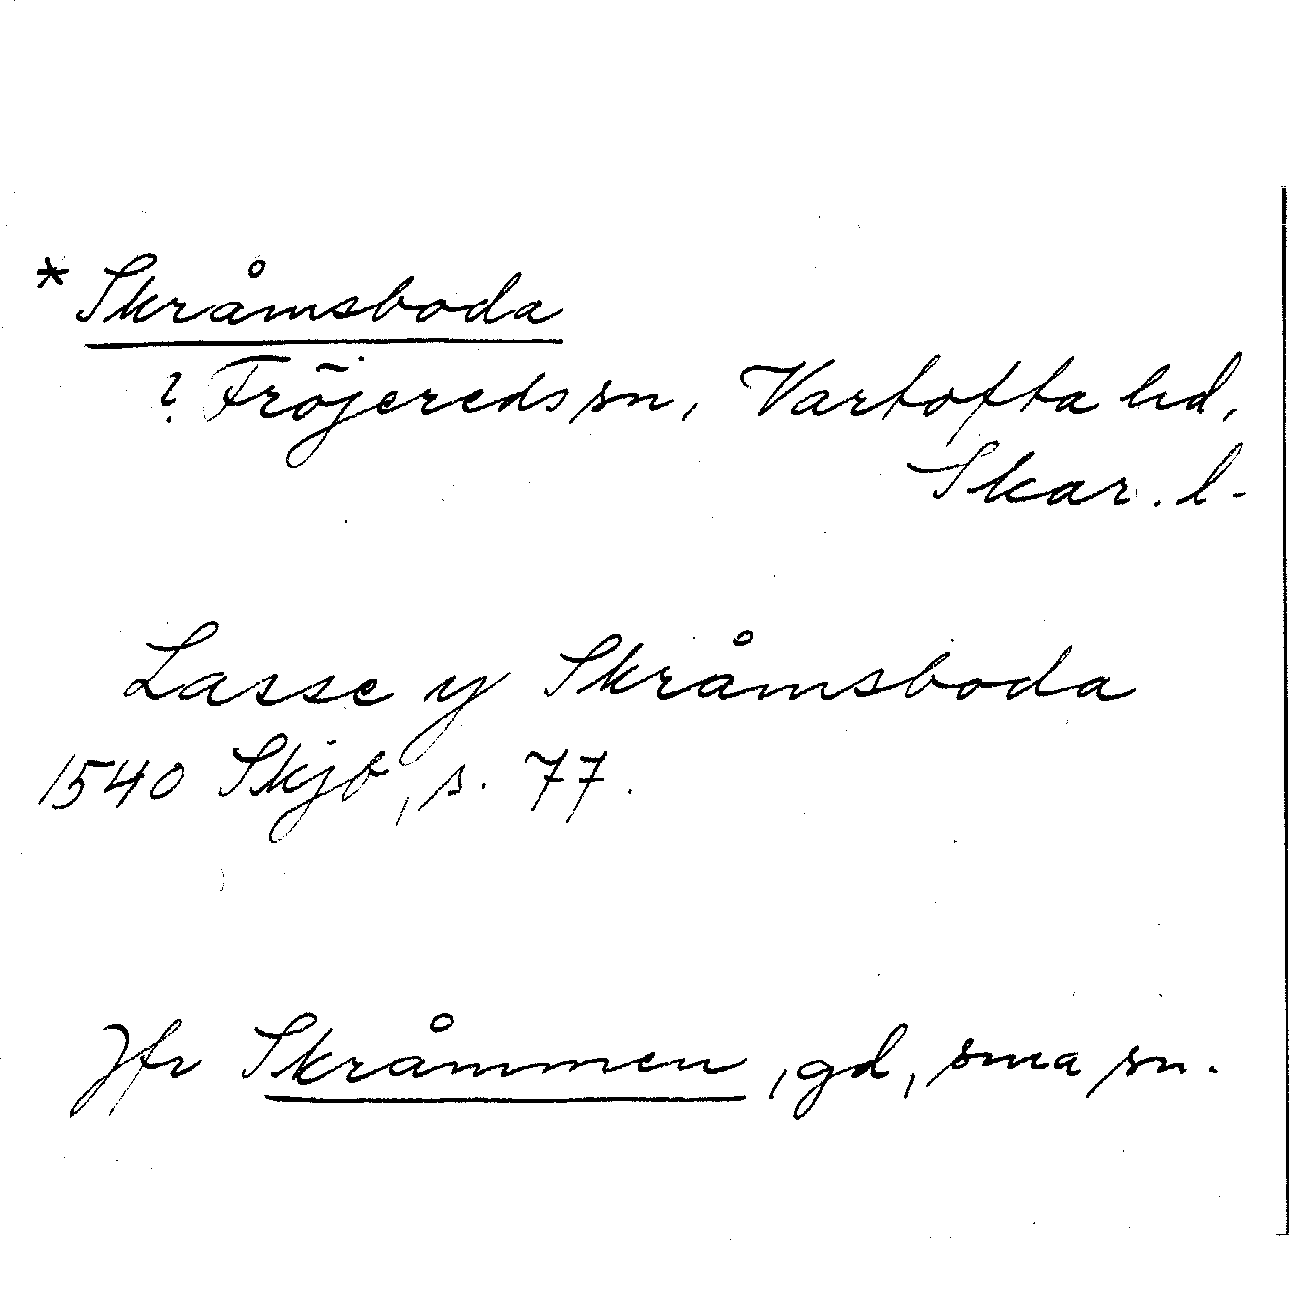 * Skråmsboda
? Fröjereds sn, Vartofta hd,
Skar. l.
Lasse y Skråmsboda
1540 Skjb, s. 77.
Jfr Skråmmen, gd, sma sn.